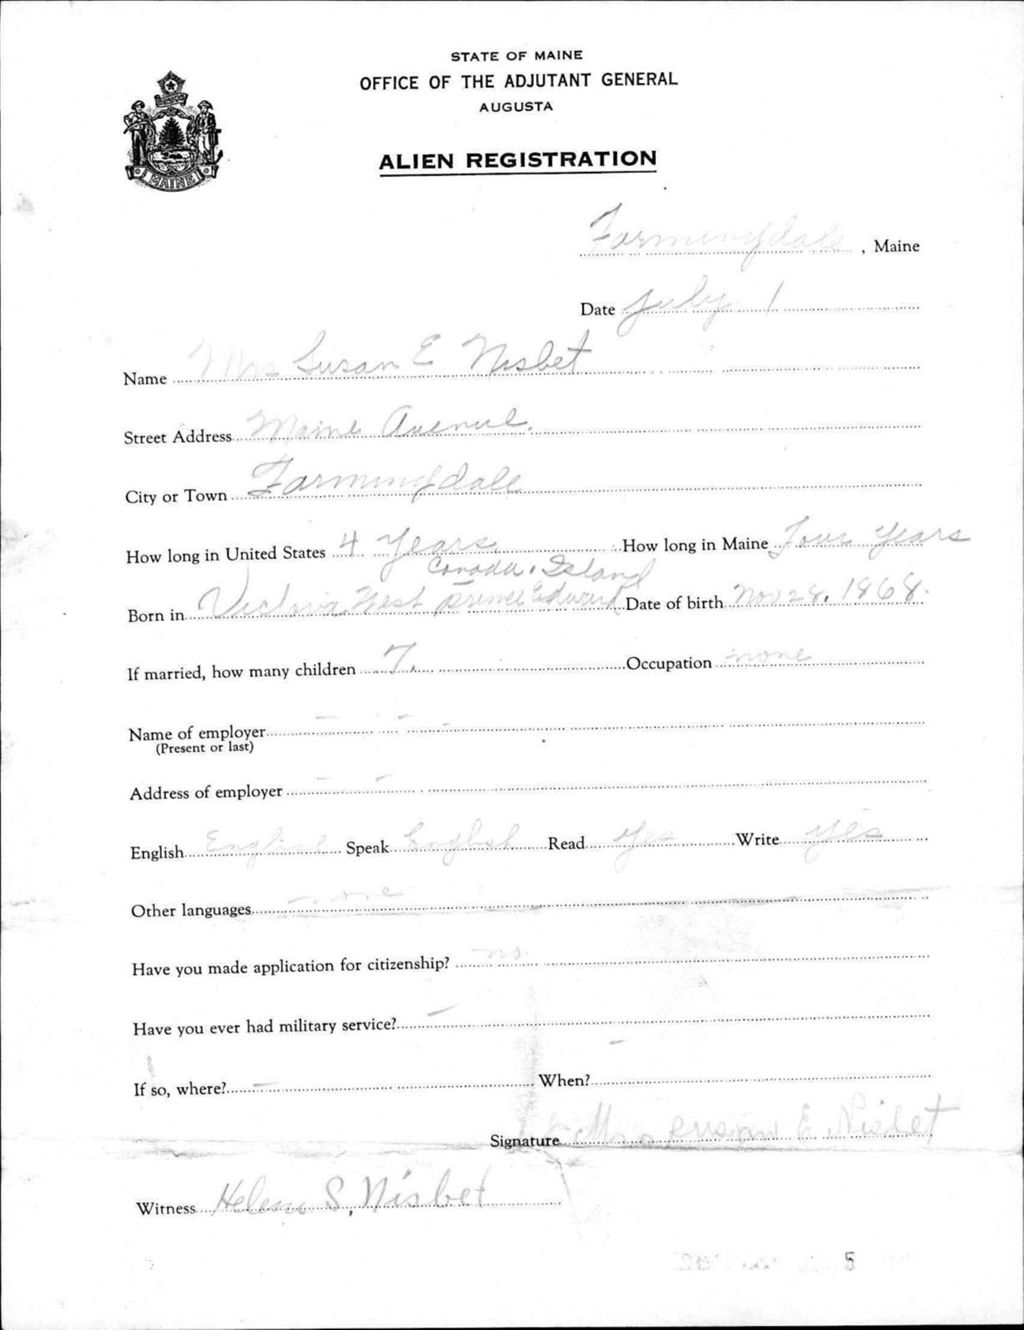 STATE OF MAINE
OFFICE OF THE ADJUTANT GENERAL
AUGUSTA
MAINE
ALIEN REGISTRATION
Farmingdale, Maine
Date July 1
Name Mrs Susan E Nisbet
Street Address Maine Avenue.
City or Town Farmingdale
How long in United States 4 Years How long in Maine Four Years
Canada, Island
Born in West Prince Edward Date of birth Nov 28, 1868.
If married, how many children 7. Occupation none
Name of employer
(Present or last)
Address of employer
English English Speak English Read Yes Write yes
Other languages none
Have you made application for citizenship? no.
Have you ever had military service? —
If so, where? — When? —
Signature Mrs Susan E Nisbet
Witness Helen S, Nisbet
5